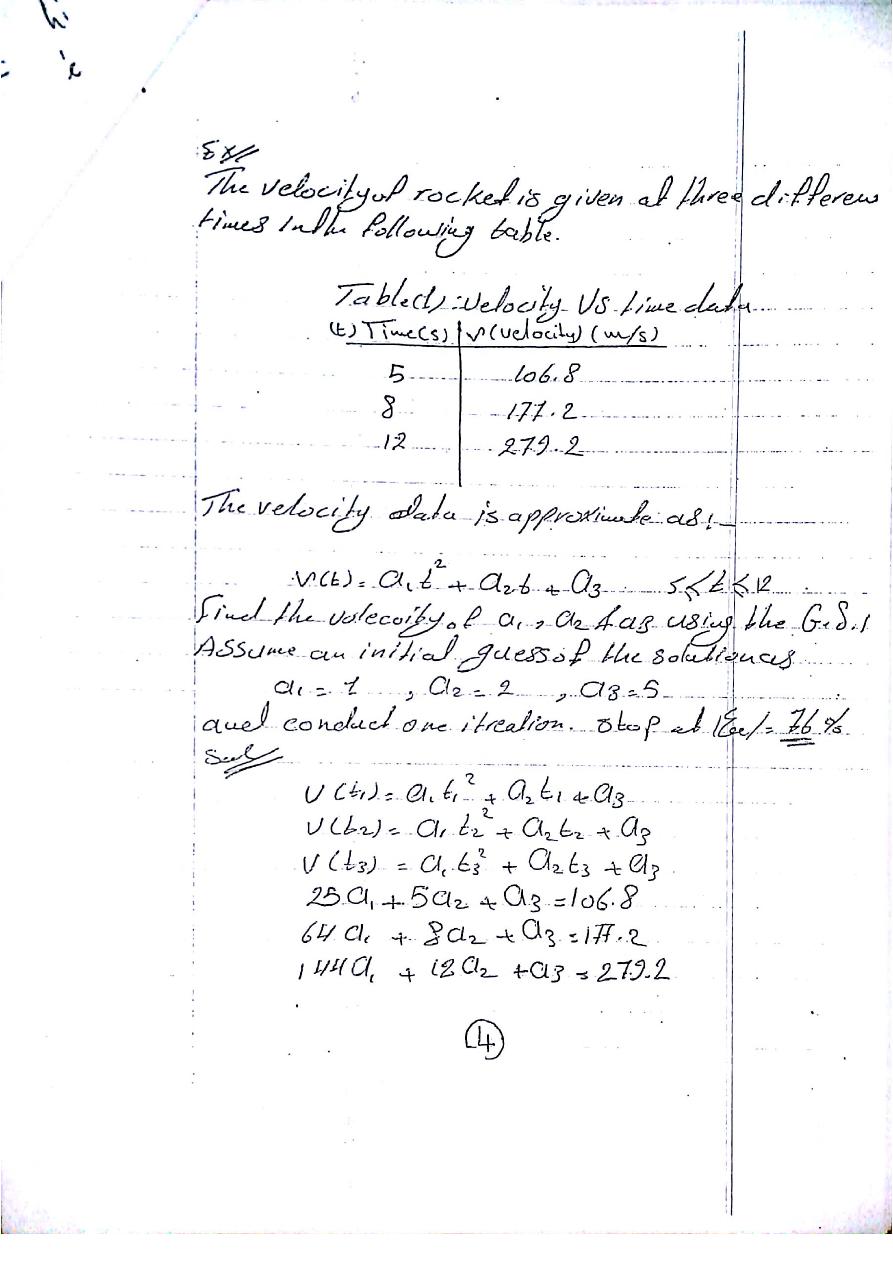 Ex//
The velocity of rocket is given at three differens
times In the following table.
Table(1): velocity Vs time data
(t) Time(s) v(velocity) (m/s)
5 106.8
8 177.2
12 279.2
The velocity data is approximate as:-
v(t) = a₁t² + a₂t + a₃ 5 ≤ t ≤ 12
Find the volecoity of a₁, a₂ & a₃ using the G.S.
Assume an initial guess of the solution as
a₁ = 1 , a₂ = 2 , a₃ = 5
and conduct one itreation. Stop at |Ea| = 76%.
Sol//
V(t₁) = a₁t₁² + a₂t₁ + a₃
V(t₂) = a₁t₂² + a₂t₂ + a₃
V(t₃) = a₁t₃² + a₂t₃ + a₃
25a₁ + 5a₂ + a₃ = 106.8
64a₁ + 8a₂ + a₃ = 177.2
144a₁ + 12a₂ + a₃ = 279.2
4